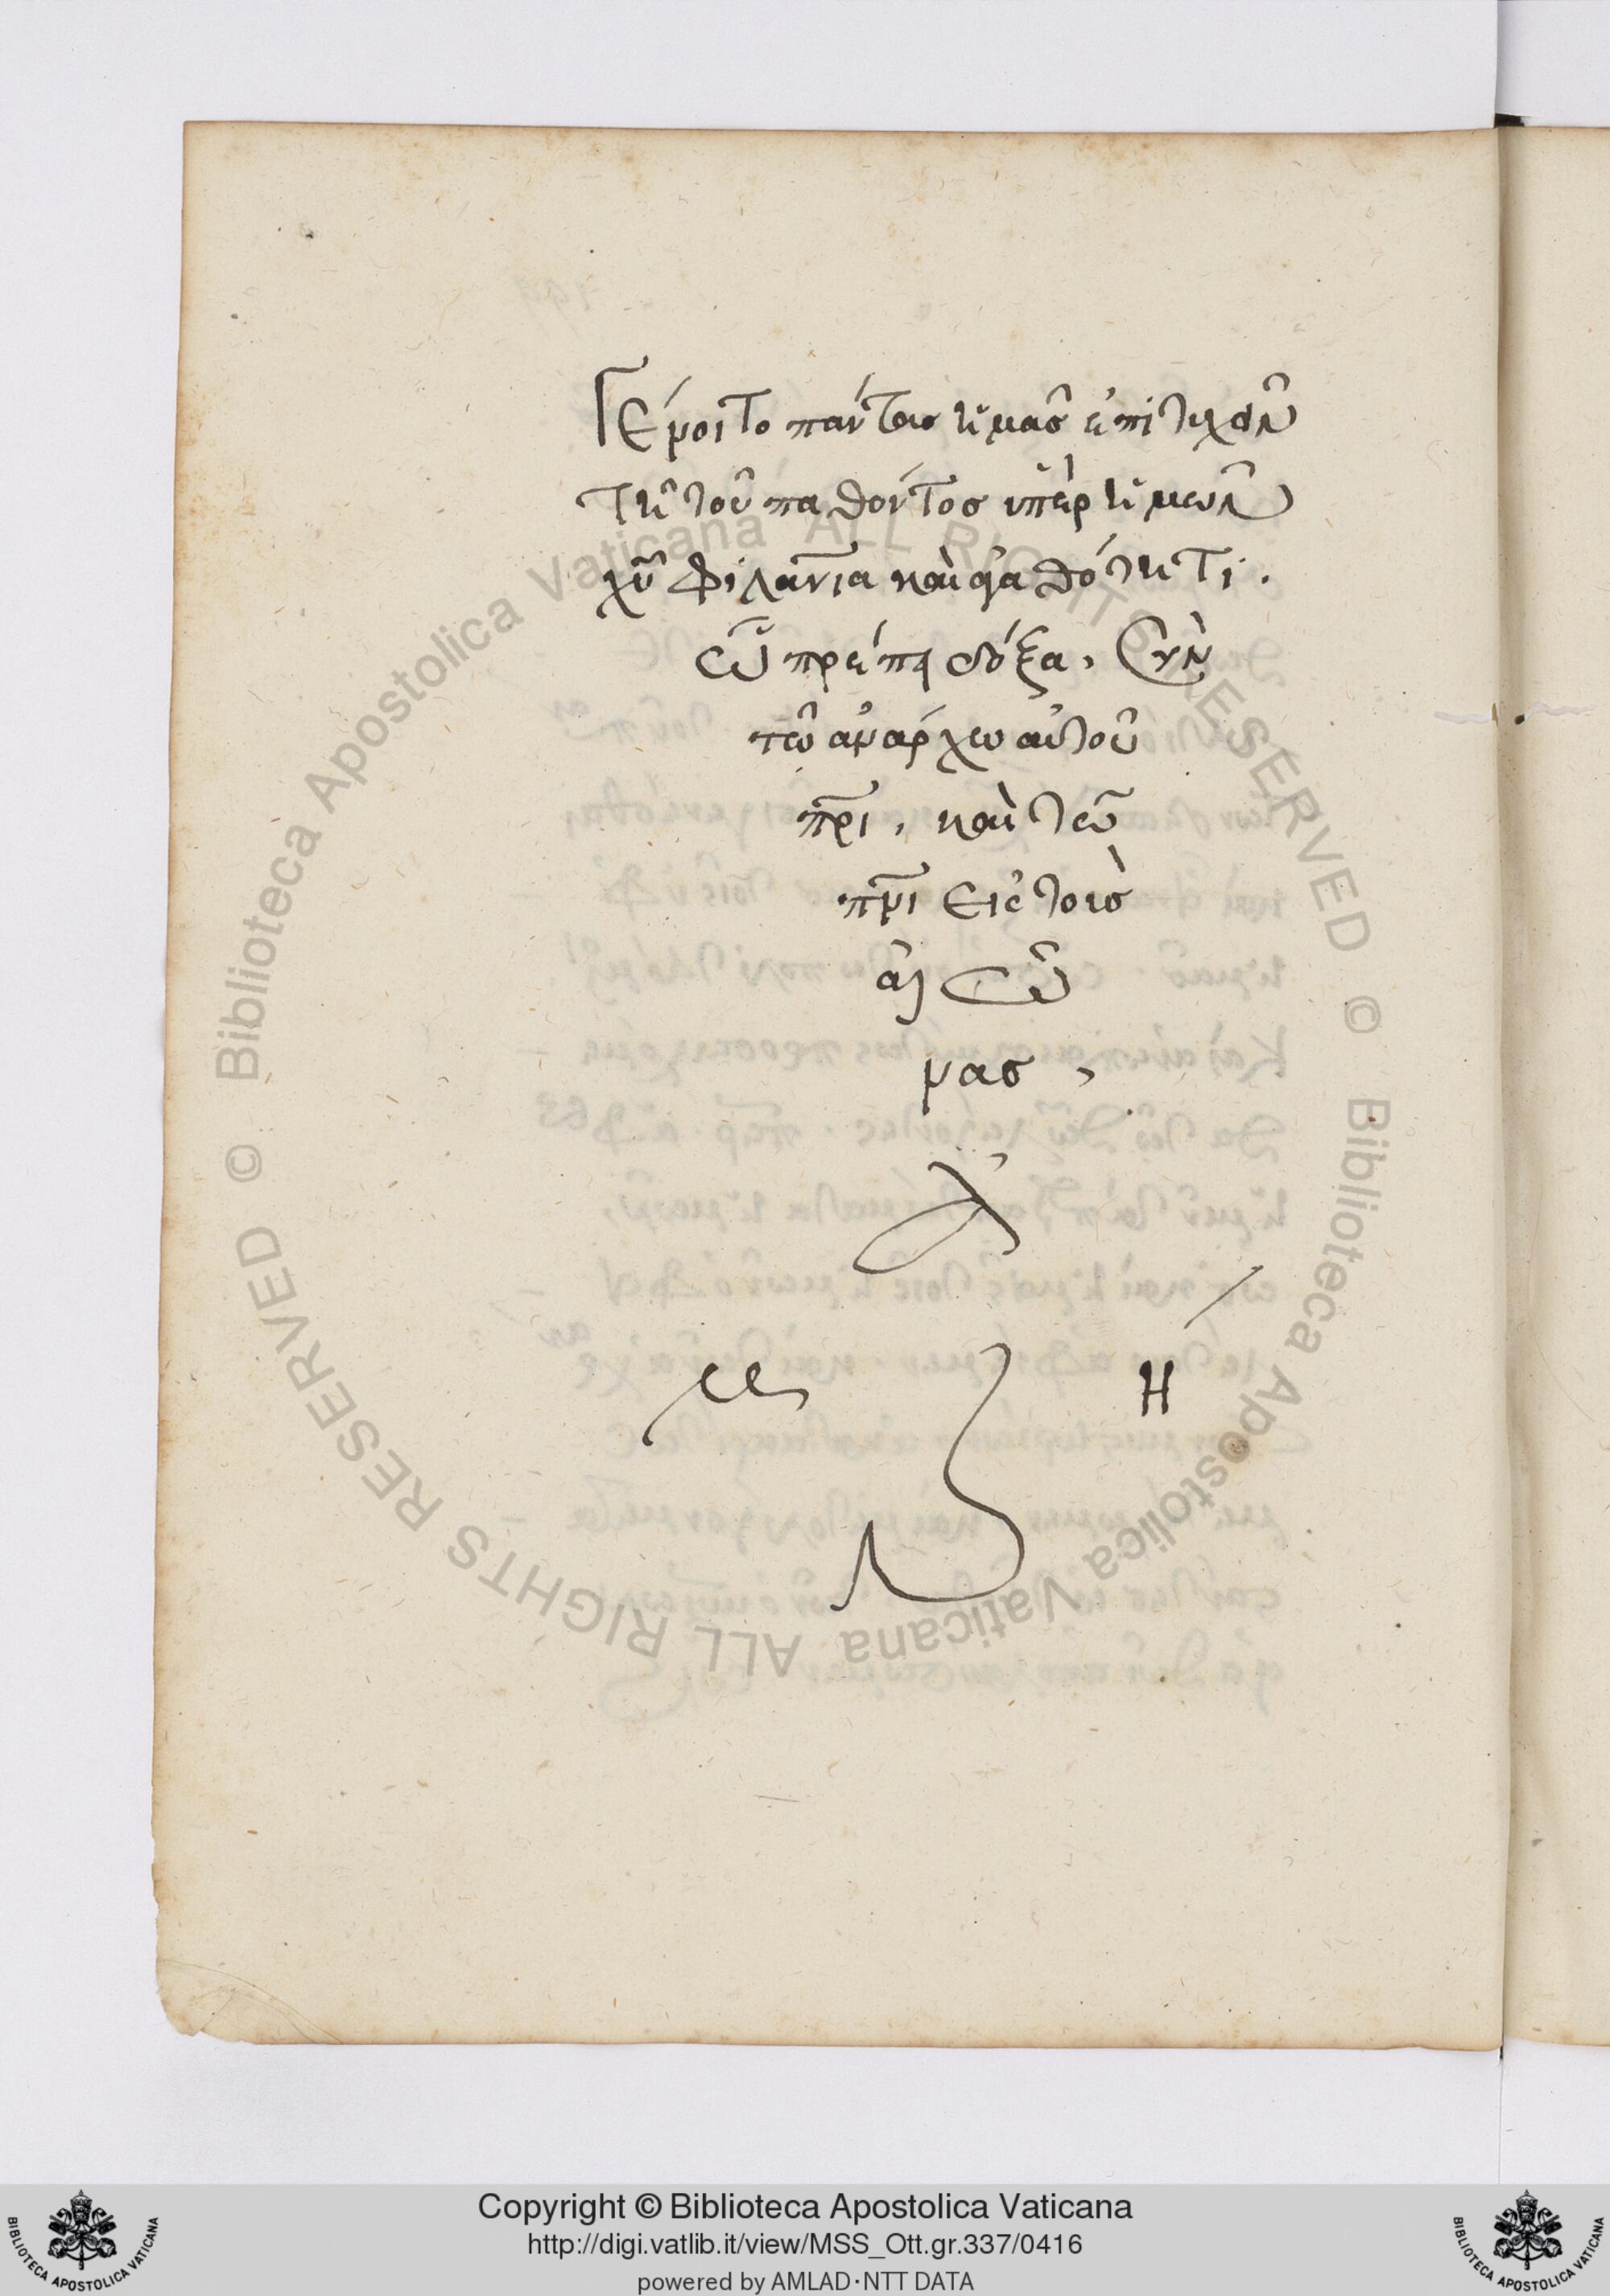 Γένοιτο πάντας ἡμᾶς ἐπιτυχεῖν
τῆ τοῦ παθόντος ὑπὲρ ἡμῶν
χῦ φιλανῖα καὶ ἀγαθότητι.
ὧ πρέπει δόξα, σὺν
τῶ ἀνάρχω αὐτοῦ
πρι, καὶ τῶ
πνι εἰς τοὺσ
αἰῶ
νας,
ἀ
μ ή
ν
© Biblioteca Apostolica Vaticana ALL RIGHTS RESERVED
© Biblioteca Apostolica Vaticana ALL RIGHTS RESERVED
Copyright © Biblioteca Apostolica Vaticana
http://digi.vatlib.it/view/MSS_Ott.gr.337/0416
powered by AMLAD·NTT DATA
BIBLIOTECA APOSTOLICA VATICANA
BIBLIOTECA APOSTOLICA VATICANA